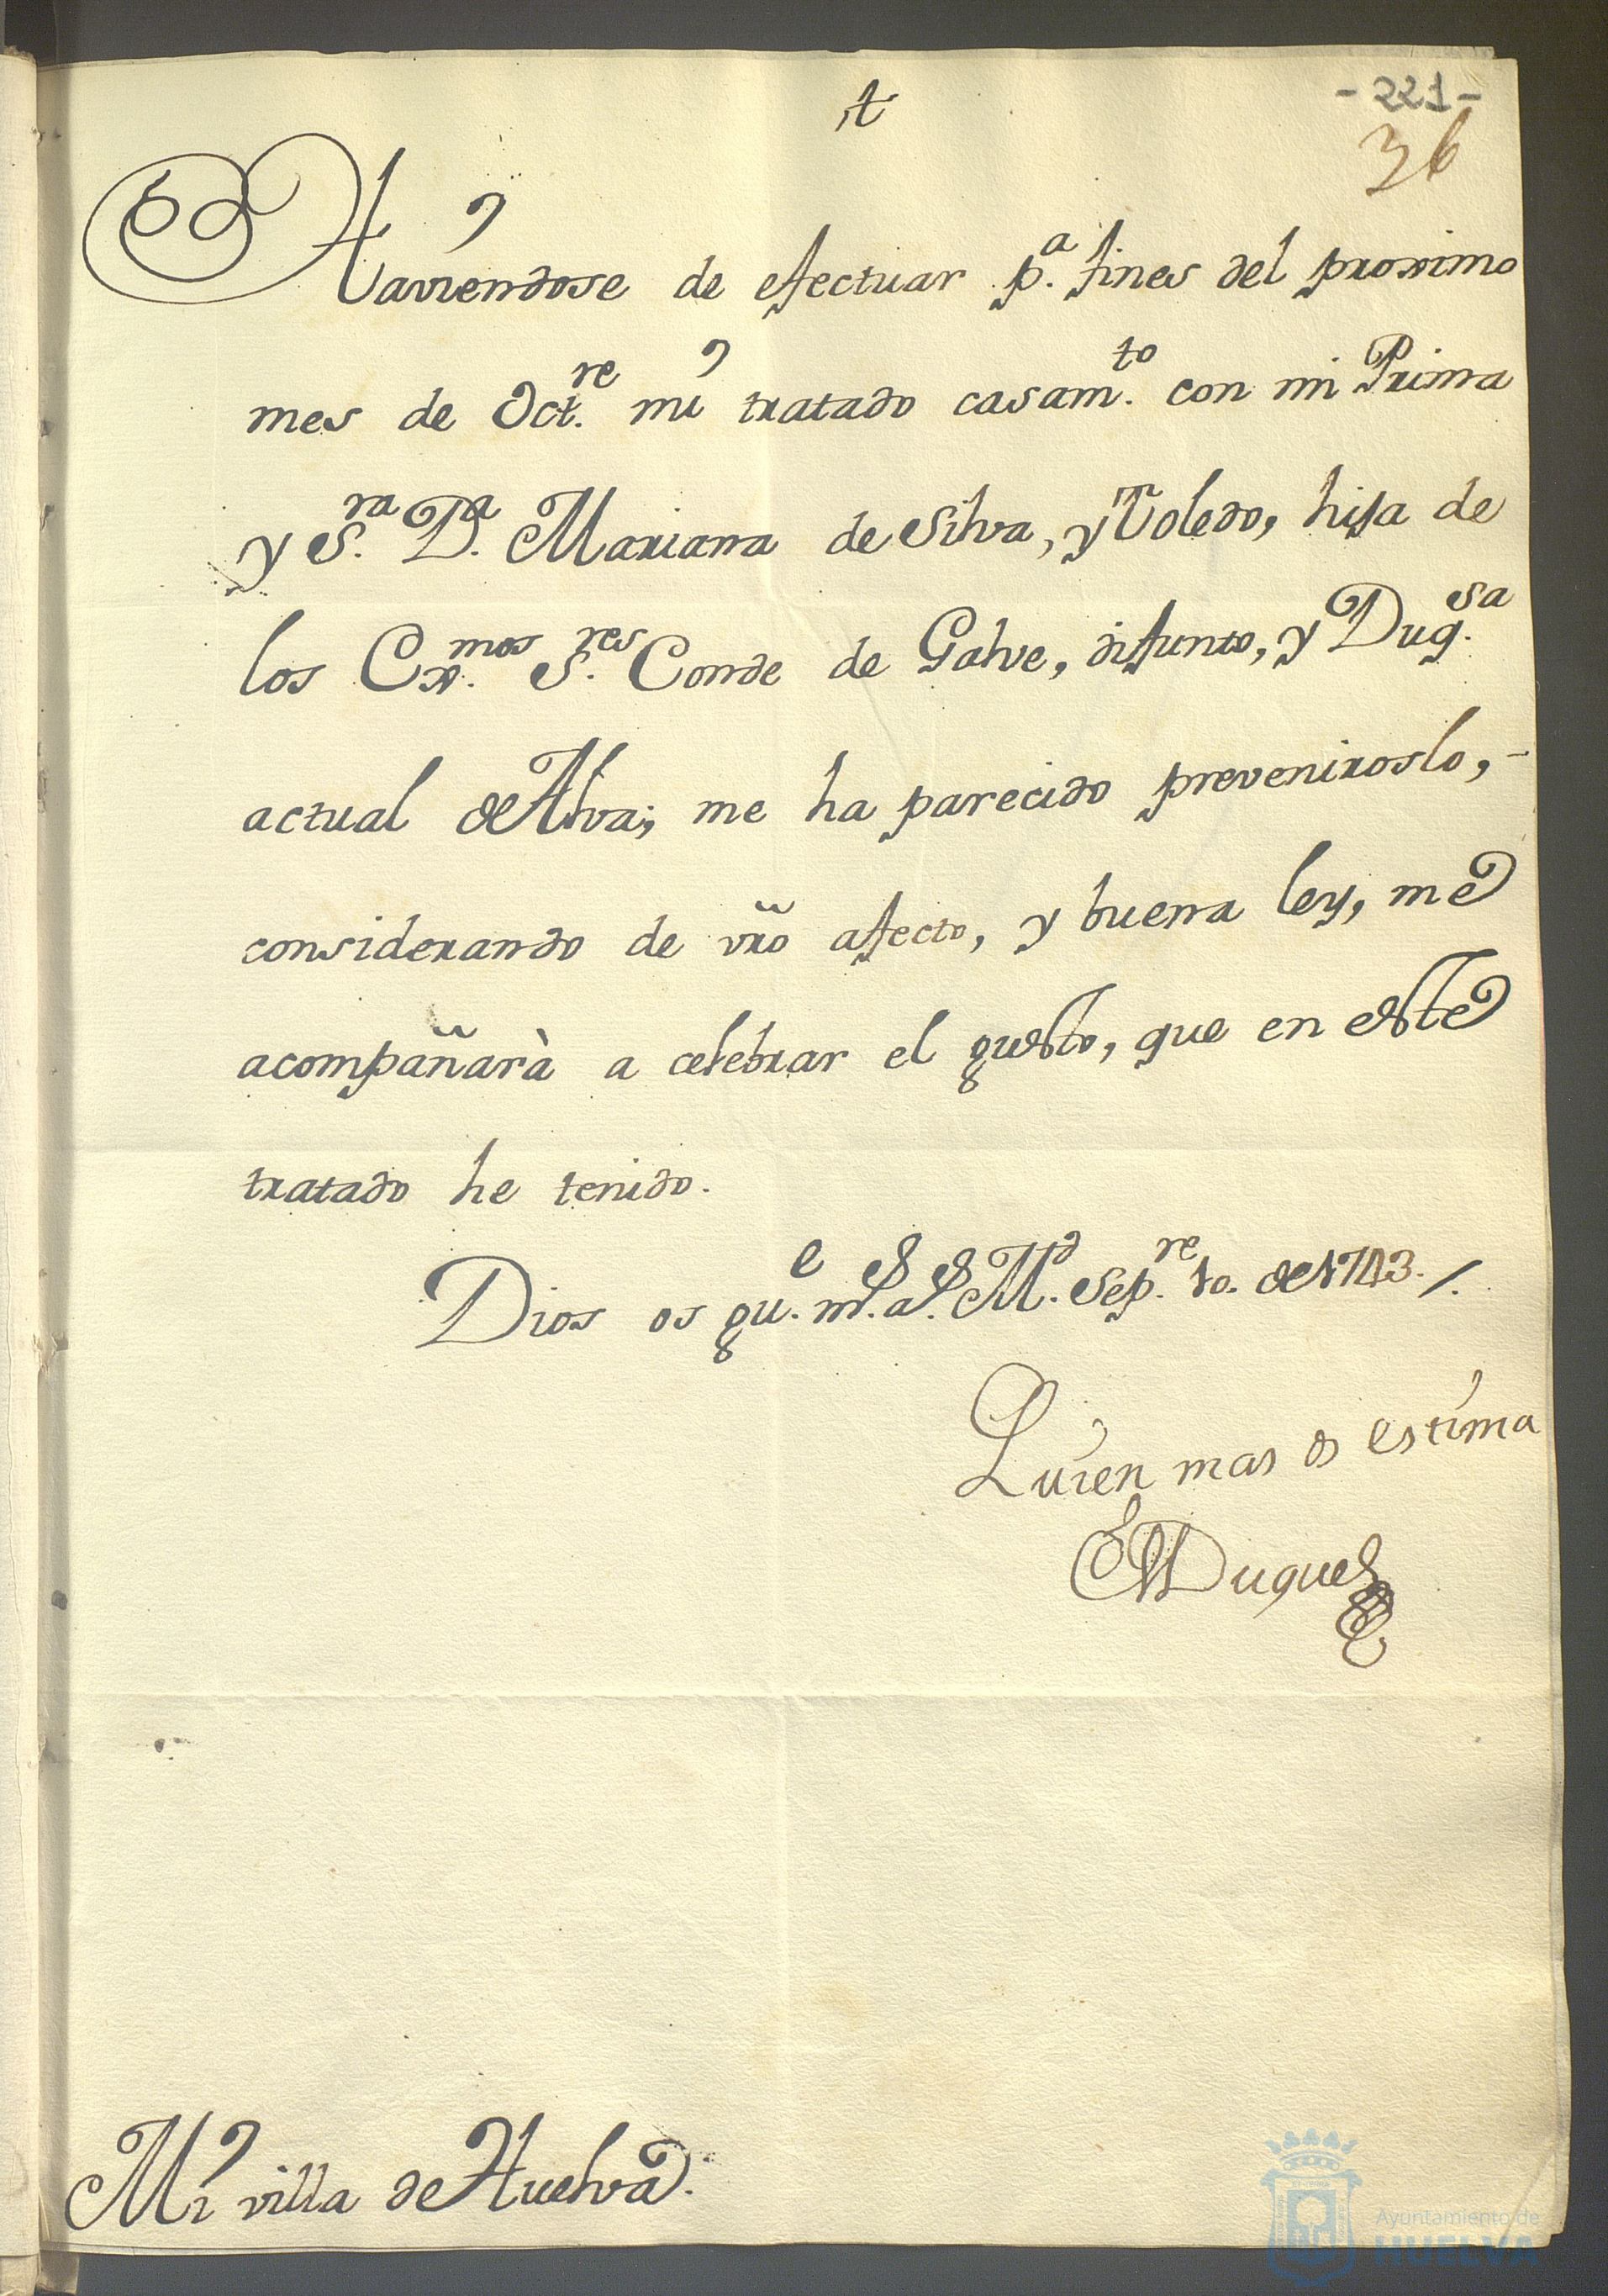 t
- 221 -
36
Haviendose de efectuar p.ª fines del proximo
mes de Oct.re mi tratado casam.to con mi Prima
y S.ra D.ª Mariana de Silva, y Toledo, hija de
los Ex.mos S.res Conde de Galve, difunto, y Duq.sa
actual de Alva; me ha parecido preveniroslo,-
considerando de vr̃o afecto, y buena ley, me
acompañarà a celebrar el gusto, que en este
tratado he tenido.
Dios os gu.e m.s a.s M.d Sep.re 10. de 1743./.
Quien mas os estima
El Duque
Mi villa de Huelva.
Ayuntamiento de
HUELVA